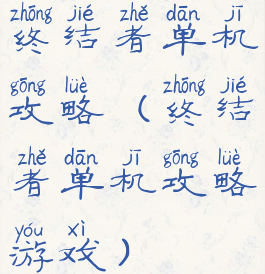 zhōng jié zhě dān jī
终结者单机
gōng lüè zhōng jié
攻略（终结
zhě dān jī gōng lüè
者单机攻略
yóu xì
游戏）